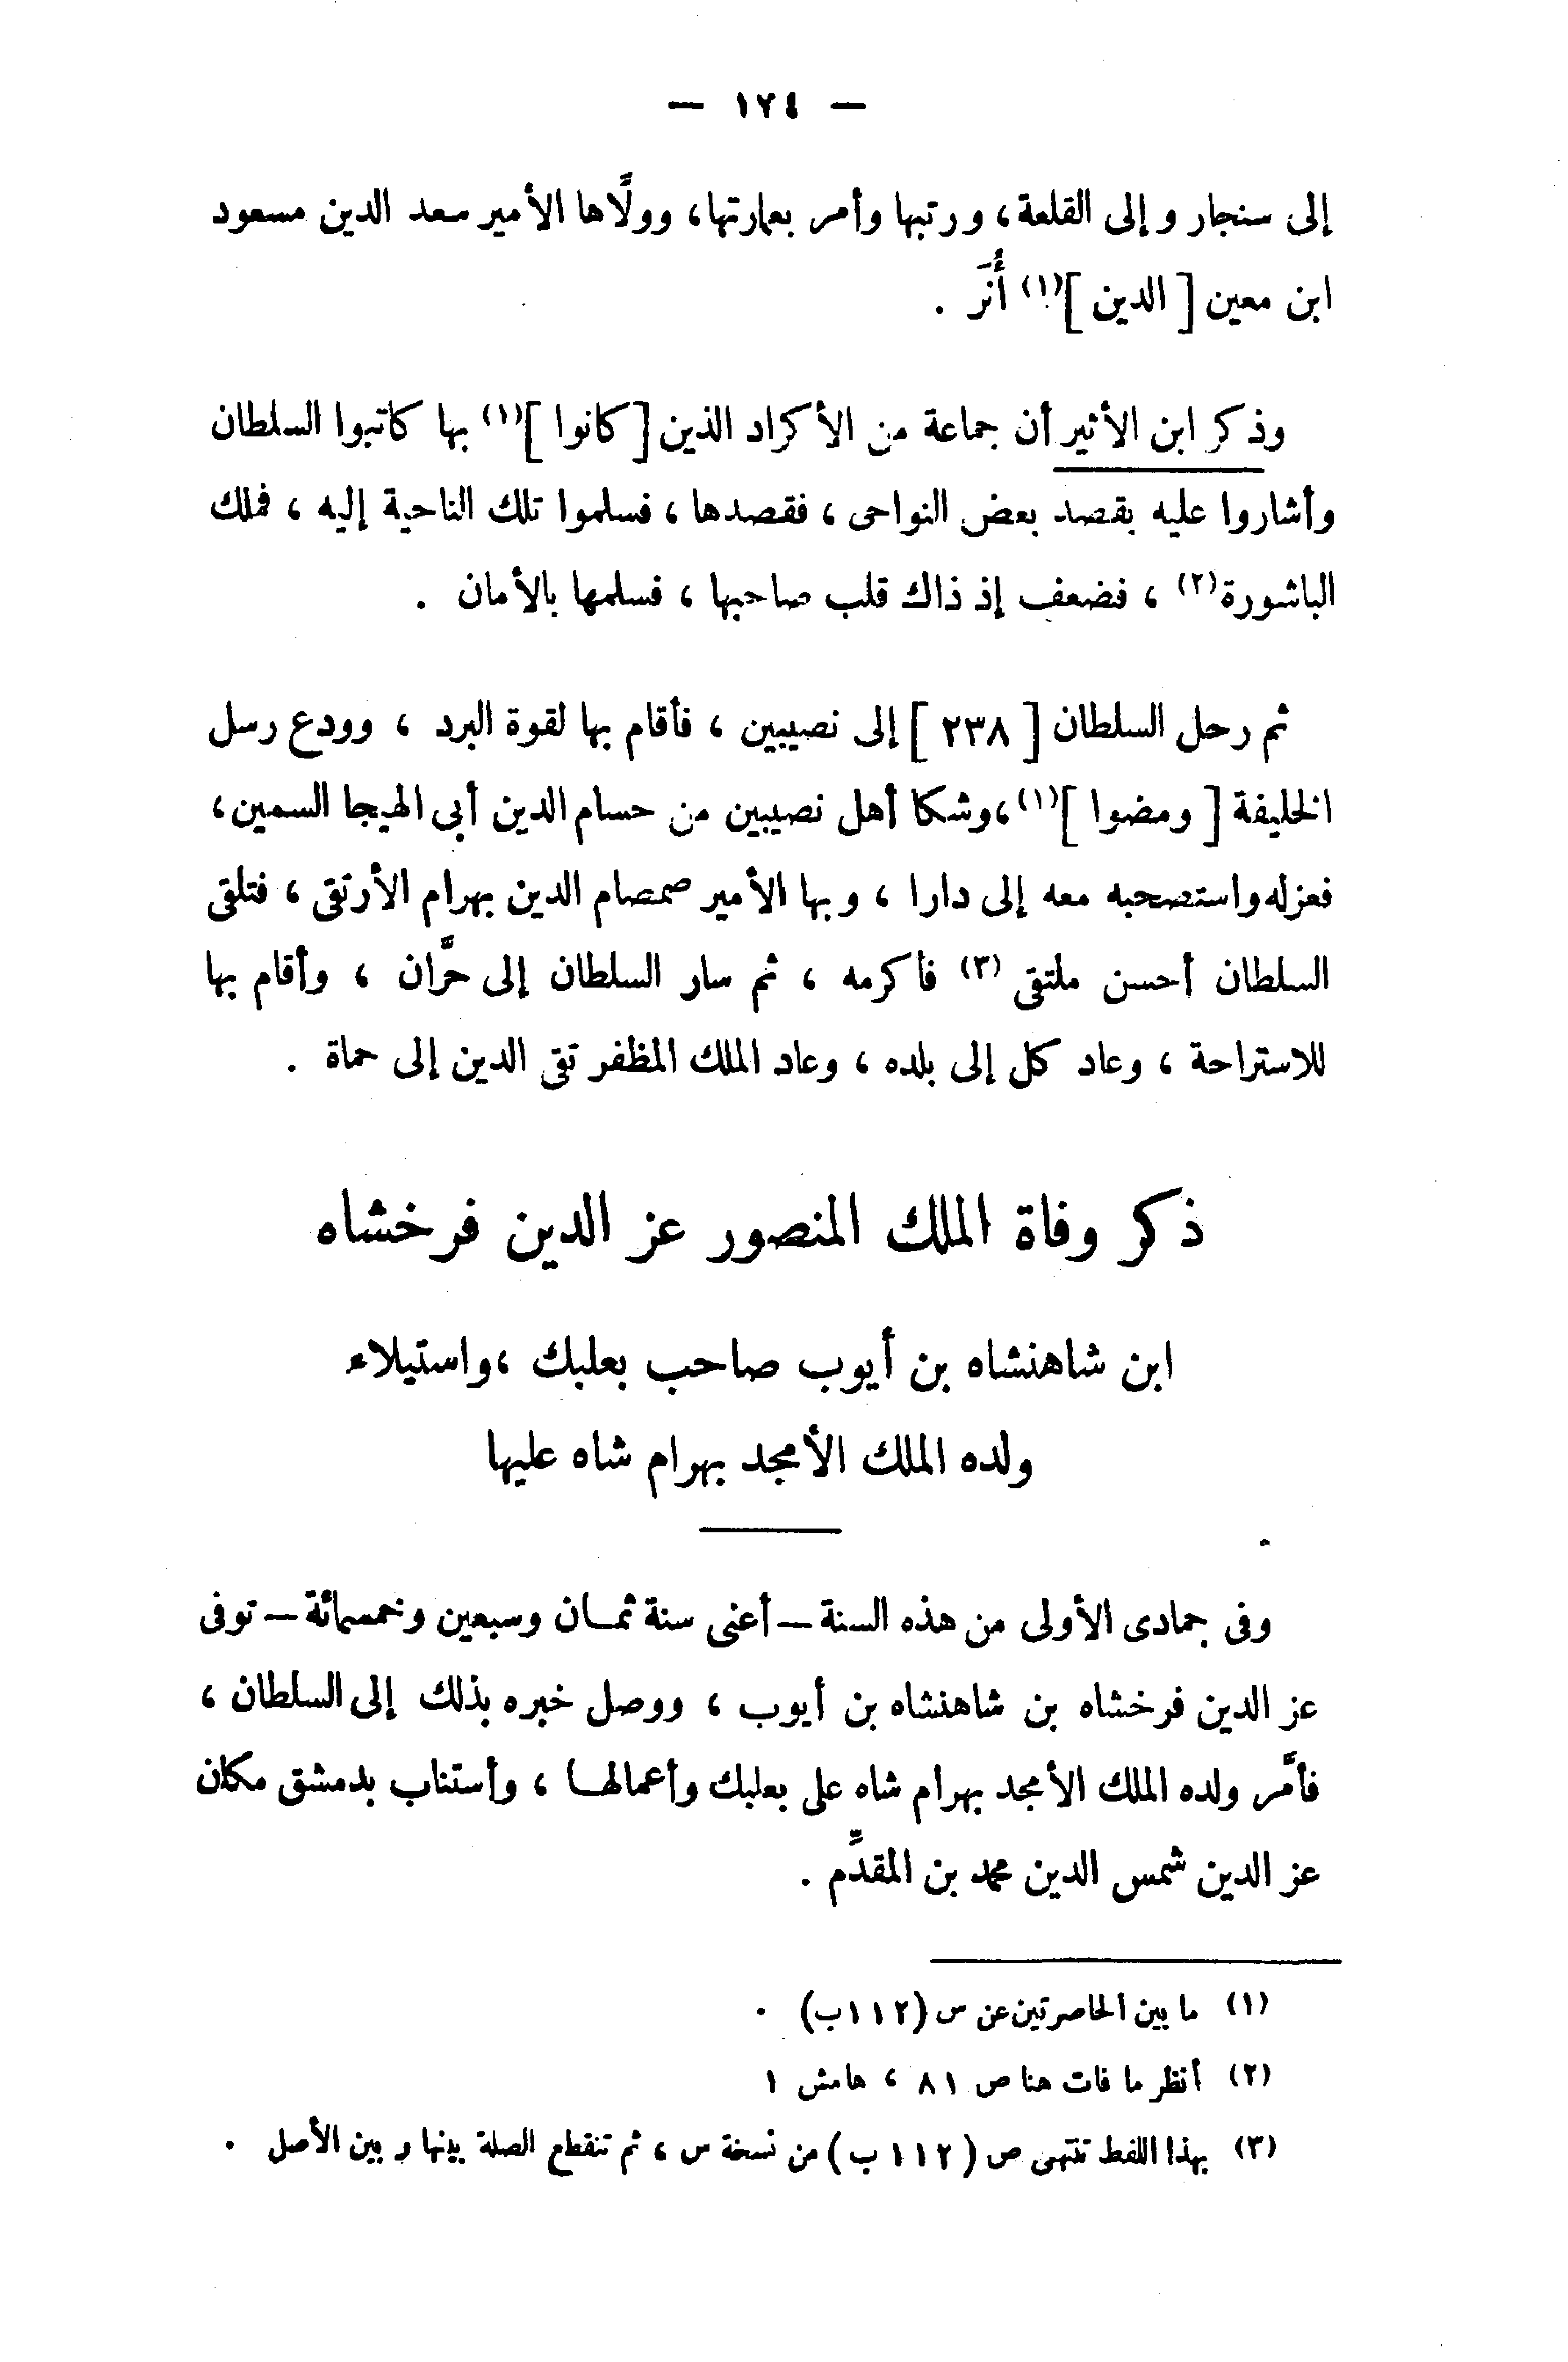 — ١٢٤ —
إلى سنجار وإلى القلعة، ورتبها وأمر بعمارتها، وولَّاها الأمير سعد الدين مسعود
ابن معين [ الدين ](١) أُنَر .
وذكر ابن الأثير أن جماعة من الأكراد الذين [ كانوا ](١) بها كاتبوا السلطان
وأشاروا عليه بقصد بعض النواحى ، فقصدها ، فسلموا تلك الناحية إليه ، فملك
الباشورة(٢) ، فضعف إذ ذاك قلب صاحبها ، فسلمها بالأمان .
ثم رحل السلطان [ ٢٣٨ ] إلى نصيبين ، فأقام بها لقوة البرد ، وودع رسل
الخليفة [ ومضوا ](١)،وشكا أهل نصيبين من حسام الدين أبى الهيجا السمين،
فعزله واستصحبه معه إلى دارا ، وبها الأمير صمصام الدين بهرام الأرتقى ، فتلقى
السلطان أحسن ملتقى (٣) فأكرمه ، ثم سار السلطان إلى حرَّان ، وأقام بها
للاستراحة ، وعاد كل إلى بلده ، وعاد الملك المظفر تقى الدين إلى حماة .
ذكر وفاة الملك المنصور عز الدين فرخشاه
ابن شاهنشاه بن أيوب صاحب بعلبك ،واستيلاء
ولده الملك الأمجد بهرام شاه عليها
وفى جمادى الأولى من هذه السنة — أعنى سنة ثمـان وسبعين وخمسمائة — توفى
عز الدين فرخشاه بن شاهنشاه بن أيوب ، ووصل خبره بذلك إلى السلطان ،
فأمَّر ولده الملك الأمجد بهرام شاه على بعلبك وأعمالهـا ، وأستناب بدمشق مكان
عز الدين شمس الدين محمد بن المقدَّم .
(١) ما بين الحاصرتين عن س (١١٢ب) .
(٢) أنظر ما فات هنا ص ٨١ ، هامش ١
(٣) بهذا اللفظ تنتهى ص (١١٢ ب) من نسخة س ، ثم تنقطع الصلة بينها و بين الأصل .